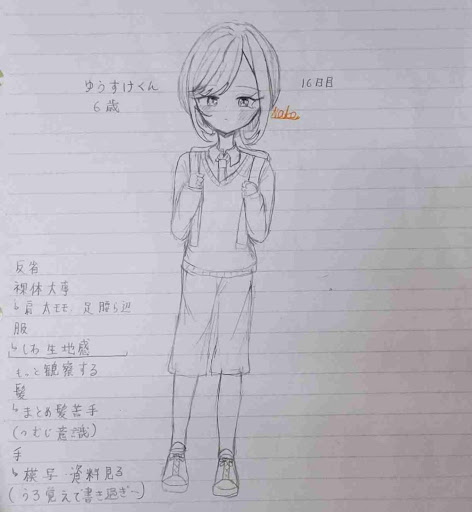 ゆうすけくん
6歳
16日目
koko
反省
裸体大事
↳肩 太モモ 足 腰ら辺
服
↳しわ生地感
もっと観察する
髪
↳まとめ髪苦手
(つむじ意識)
手
↳模写・資料見る
(うろ覚えで書き過ぎ〜)